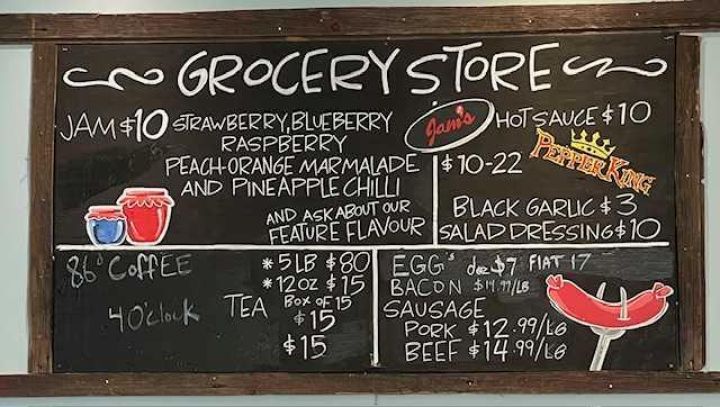 GROCERY STORE
JAM $10 STRAWBERRY, BLUEBERRY
RASPBERRY
PEACH-ORANGE MARMALADE
AND PINEAPPLE CHILLI
AND ASK ABOUT OUR
FEATURE FLAVOUR
Jam's HOT SAUCE $10
$10-22 PEPPER KING
BLACK GARLIC $3
SALAD DRESSING $10
86° COFFEE
4 O'clock
* 5LB $80
* 12OZ $15
TEA BOX OF 15
$15
$15
EGG's doz $7 FLAT 17
BACON $14.99/LB
SAUSAGE
PORK $12.99/LG
BEEF $14.99/LG